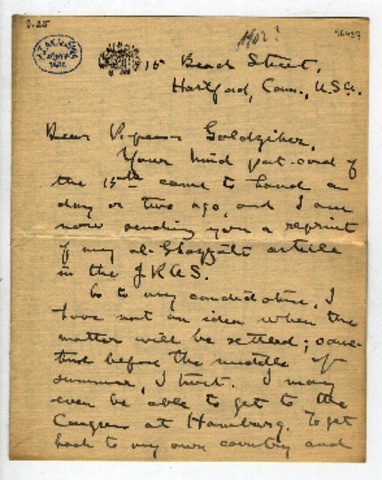 D.25
1902?
15 Beach Street,
Hartford, Conn., U.S.A.
Dear Professor Goldziher,
Your kind post-card of
the 15th came to hand a
day or two ago, and I am
now sending you a reprint
of my al-Ghazzālī article
in the JRAS.
As to my candidature, I
have not an idea when the
matter will be settled; some-
time before the middle of
summer, I trust. I may
even be able to get to the
Congress at Hamburg. To get
back to my own country and